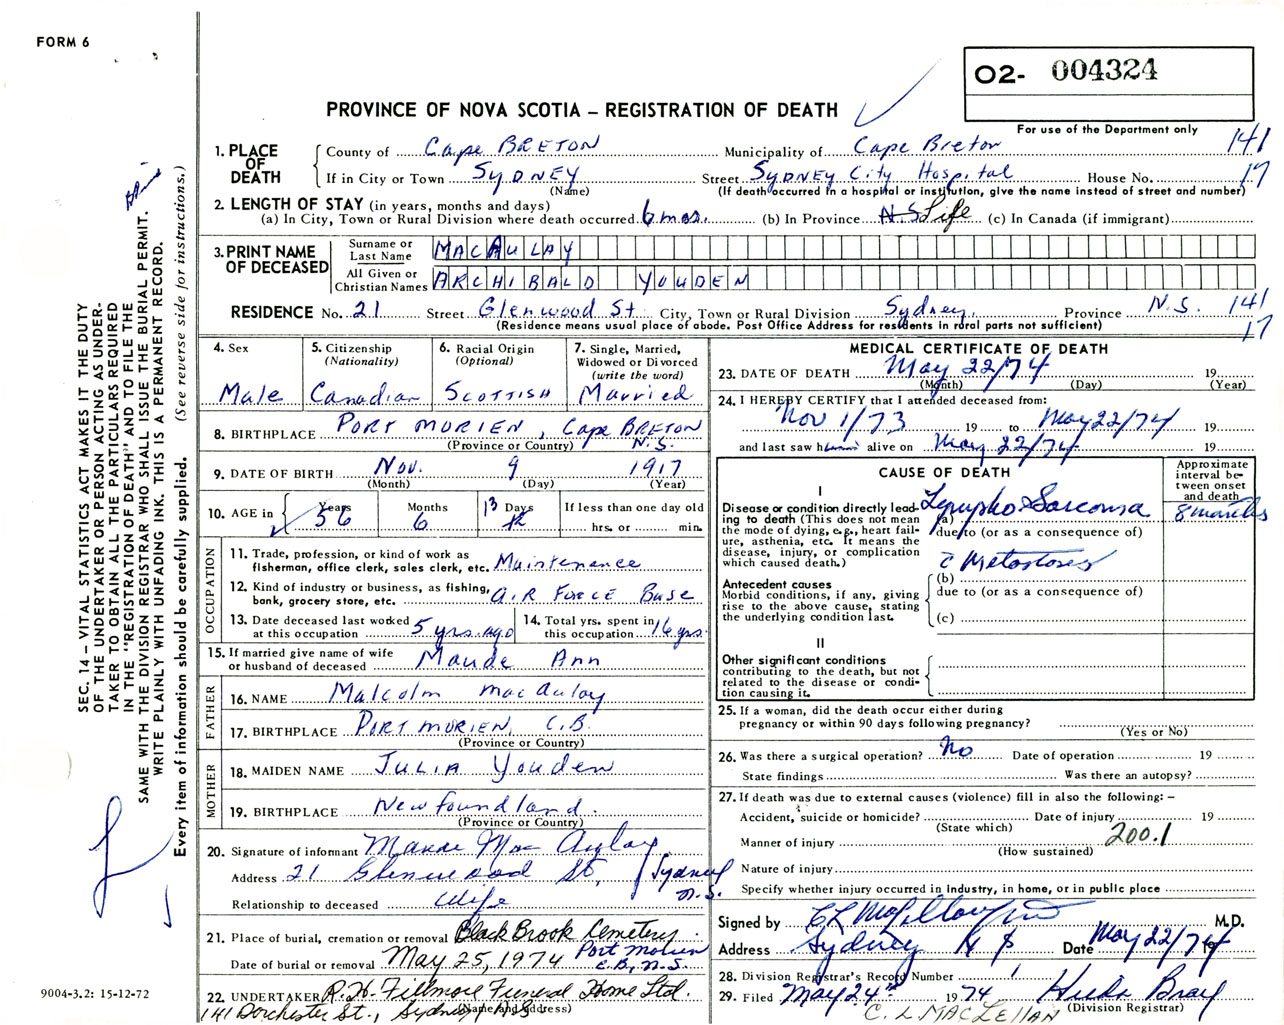 FORM 6
O2- 004324
PROVINCE OF NOVA SCOTIA – REGISTRATION OF DEATH
For use of the Department only
1. PLACE OF DEATH
County of Cape BRETON Municipality of Cape Breton 141
If in City or Town SYDNEY Street SYDNEY City Hospital House No. 17
(Name) (If death occurred in a hospital or institution, give the name instead of street and number)
2. LENGTH OF STAY (in years, months and days)
(a) In City, Town or Rural Division where death occurred 6 mos. (b) In Province N.S Life (c) In Canada (if immigrant)
3. PRINT NAME OF DECEASED
Surname or Last Name MACAULAY
All Given or Christian Names ARCHIBALD YOUDEN
RESIDENCE No. 21 Street Glenwood St City, Town or Rural Division Sydney, Province N.S. 141
(Residence means usual place of abode. Post Office Address for residents in rural parts not sufficient) 17
4. Sex
Male
5. Citizenship (Nationality)
Canadian
6. Racial Origin (Optional)
SCOTTISH
7. Single, Married, Widowed or Divorced (write the word)
Married
8. BIRTHPLACE PORT MORIEN, Cape BRETON
(Province or Country) N.S.
9. DATE OF BIRTH Nov. 9 1917
(Month) (Day) (Year)
10. AGE in Years 56 Months 6 13 Days
If less than one day old
hrs. or min.
OCCUPATION
11. Trade, profession, or kind of work as fisherman, office clerk, sales clerk, etc. Maintenance
12. Kind of industry or business, as fishing, bank, grocery store, etc. AIR FORCE Base
13. Date deceased last worked at this occupation 5 yrs. ago
14. Total yrs. spent in this occupation 16 yrs.
15. If married give name of wife or husband of deceased Maude Ann
FATHER
16. NAME Malcolm MacAulay
17. BIRTHPLACE PORT MORIEN, C.B.
(Province or Country)
MOTHER
18. MAIDEN NAME JULIA Youden
19. BIRTHPLACE Newfoundland.
(Province or Country)
20. Signature of informant Maude MacAulay
Address 21 Glenwood St, Sydney N.S.
Relationship to deceased Wife
21. Place of burial, cremation or removal Black Brook Cemetery
Date of burial or removal May 25, 1974 Port Morien C.B., N.S.
22. UNDERTAKER R.H. Fillmore Funeral Home Ltd.
(Name and address)
141 Dorchester St., Sydney N.S.
MEDICAL CERTIFICATE OF DEATH
23. DATE OF DEATH May 22/74 19
(Month) (Day) (Year)
24. I HEREBY CERTIFY that I attended deceased from:
Nov 1/73 19 to May 22/74 19
and last saw him alive on May 22/74 19
CAUSE OF DEATH
Approximate interval between onset and death
I
Disease or condition directly leading to death (This does not mean the mode of dying, e.g., heart failure, asthenia, etc. It means the disease, injury, or complication which caused death.)
(a) Lympho Sarcoma 8 months
due to (or as a consequence of)
c̄ Metastases
Antecedent causes
Morbid conditions, if any, giving rise to the above cause, stating the underlying condition last.
(b)
due to (or as a consequence of)
(c)
II
Other significant conditions contributing to the death, but not related to the disease or condition causing it.
25. If a woman, did the death occur either during pregnancy or within 90 days following pregnancy?
(Yes or No)
26. Was there a surgical operation? No Date of operation 19
State findings Was there an autopsy?
27. If death was due to external causes (violence) fill in also the following: –
Accident, suicide or homicide? Date of injury 19
(State which)
Manner of injury 200.1
(How sustained)
Nature of injury
Specify whether injury occurred in industry, in home, or in public place
Signed by M.D.
Address Sydney N S Date May 22/74 19
28. Division Registrar's Record Number 1
29. Filed May 24th 1974 Hilda Bray
(Division Registrar)
C. L. MACLELLAN
SEC. 14 – VITAL STATISTICS ACT MAKES IT THE DUTY
OF THE UNDERTAKER OR PERSON ACTING AS UNDER-
TAKER TO OBTAIN ALL THE PARTICULARS REQUIRED
IN THE "REGISTRATION OF DEATH" AND TO FILE THE
SAME WITH THE DIVISION REGISTRAR WHO SHALL ISSUE THE BURIAL PERMIT.
WRITE PLAINLY WITH UNFADING INK. THIS IS A PERMANENT RECORD.
Every item of information should be carefully supplied. (See reverse side for instructions.)
9004-3.2: 15-12-72